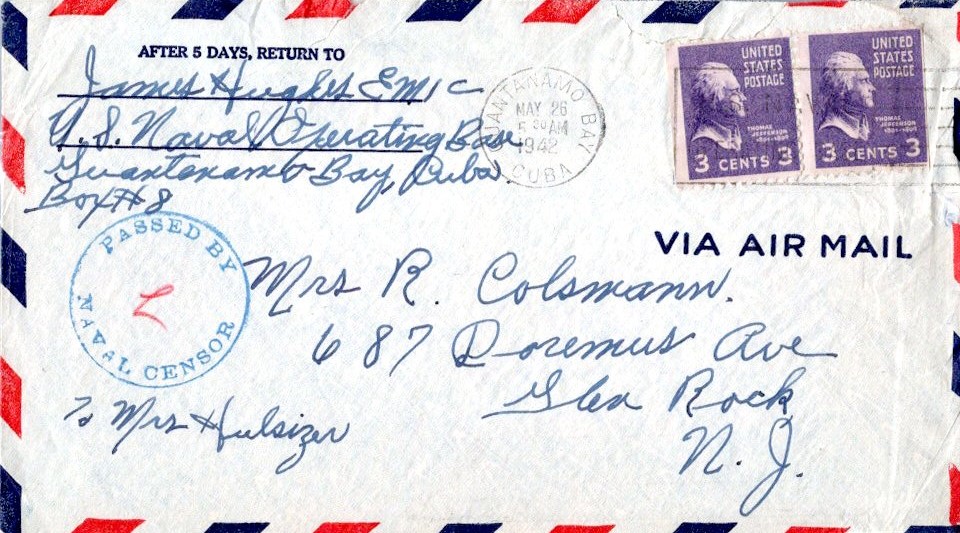 AFTER 5 DAYS, RETURN TO
James Hughes EM1C
U.S. Naval Operating Base
Guantenamo Bay, Cuba.
Box #8
GUANTANAMO BAY
MAY 26
5 30 AM
1942
CUBA
UNITED
STATES
POSTAGE
THOMAS
JEFFERSON
1801-1809
3 CENTS 3
UNITED
STATES
POSTAGE
THOMAS
JEFFERSON
1801-1809
3 CENTS 3
VIA AIR MAIL
PASSED BY
NAVAL CENSOR
Mrs R. Colsmann.
687 Doremus Ave
Glen Rock
N. J.
To Mrs Hulsizer